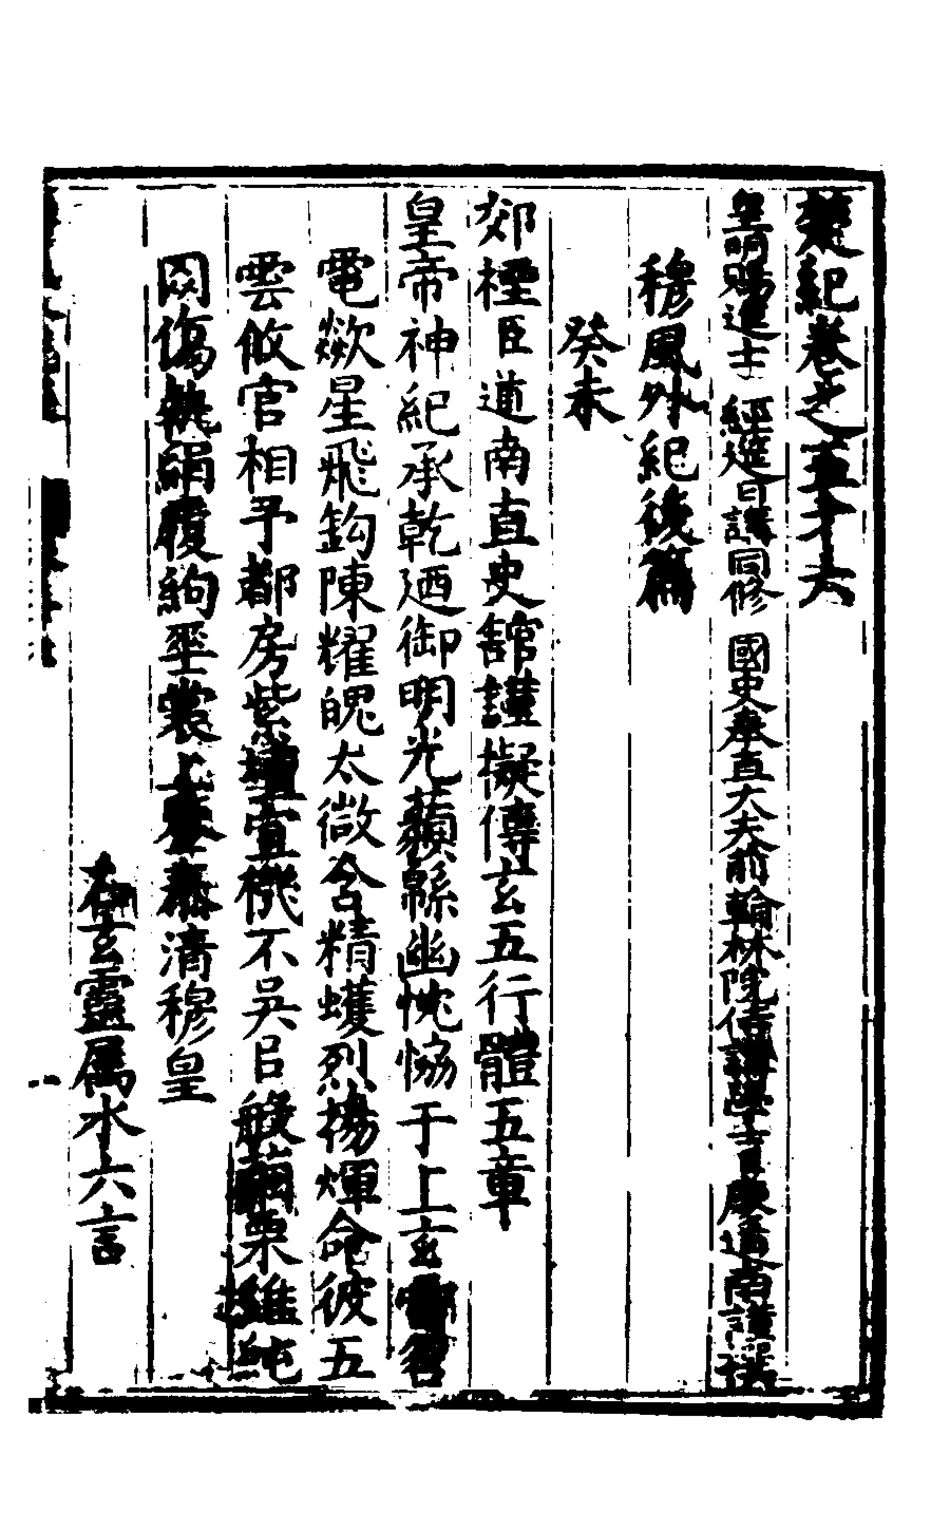 楚紀卷之五十六
皇明賜進士 經進日講同修 國史奉直大夫前翰林院侍講學士官廖道南謹撰
穆風外紀後篇
癸未
郊禋臣道南直史館謹擬傳玄五行體五章
皇帝神紀承乾廼御明光蘋繇幽忱恊于上玄
電歘星飛鈎陳耀魄太微含精蠖烈揚煇命彼五
雲攸官相予都房紫壇宣機不吳㠯繭栗維純
罔傷執絹覆絇垩裳上清穆皇
右玄靈属水六言